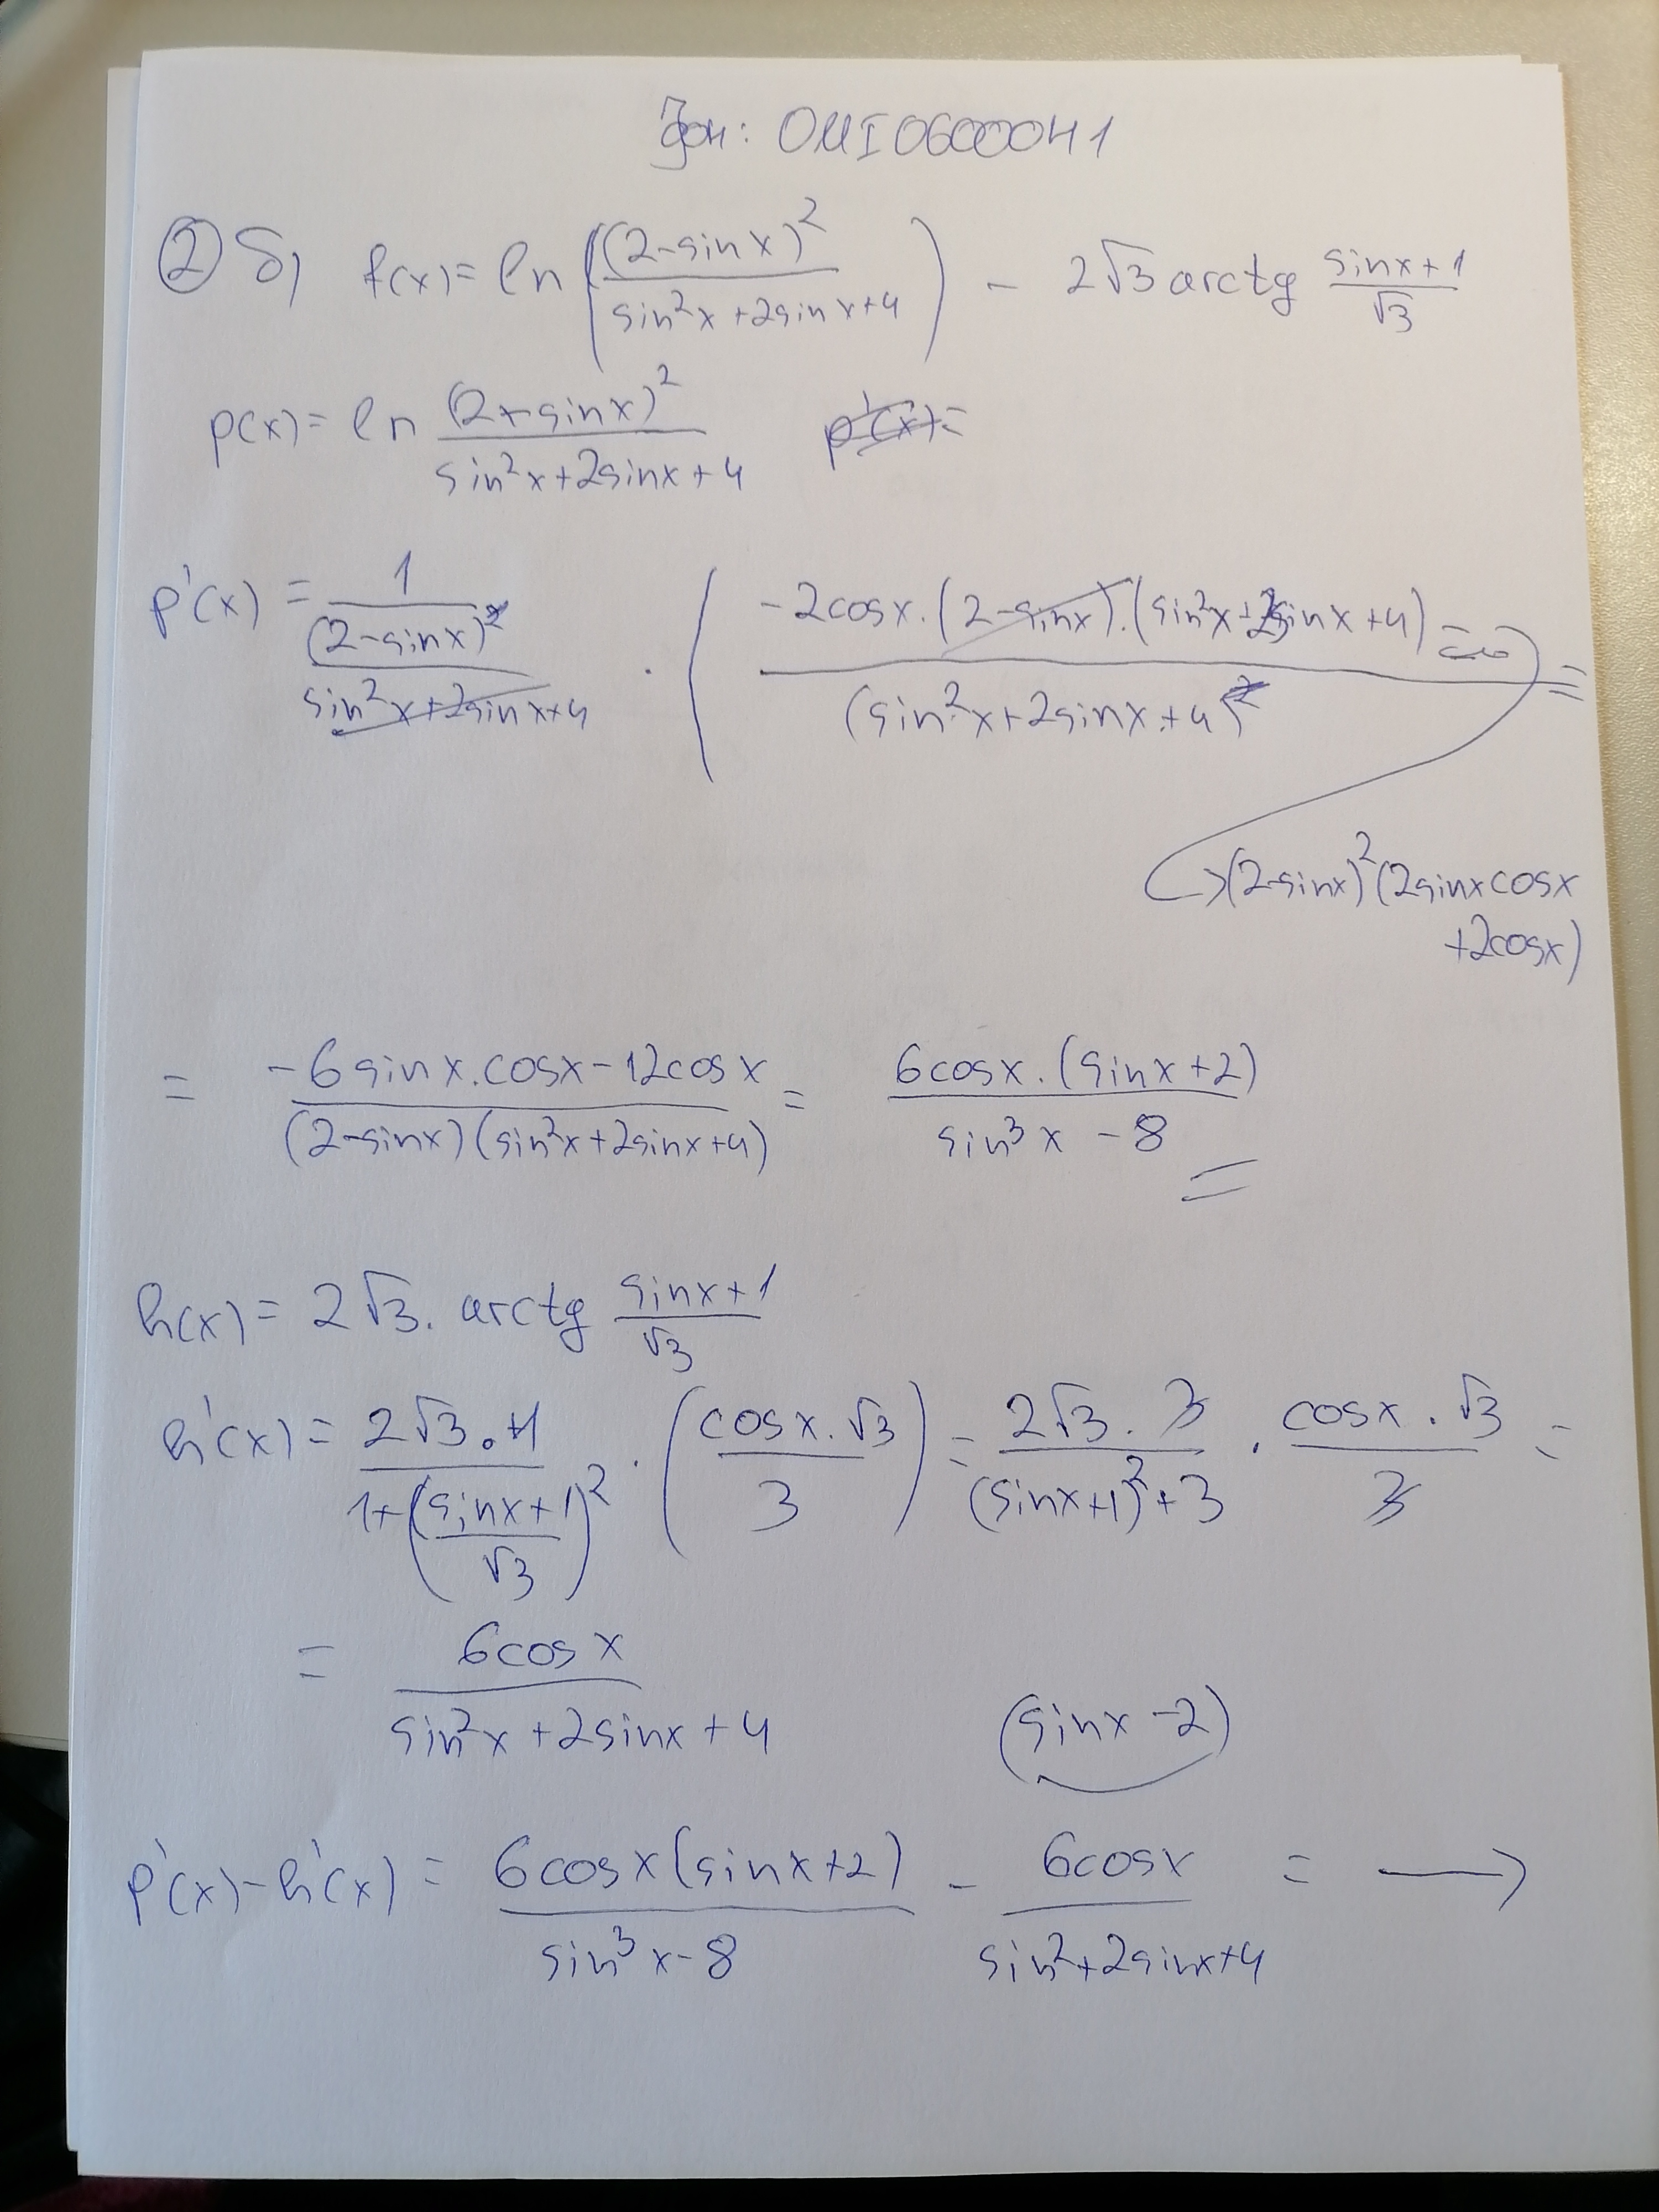 Фон: 0MI0600041
② б) f(x) = ln ((2-sinx)² / (sin²x+2sinx+4)) - 2√3 arctg (sinx+1)/√3
p(x) = ln (2-sinx)² / (sin²x+2sinx+4) p'(x)=
p'(x) = 1 / ((2-sinx)² / (sin²x+2sinx+4)) · ( (-2cosx.(2-sinx).(sin²x+2sinx+4) - / (sin²x+2sinx+4)² ) =
(2-sinx)²(2sinxcosx
+2cosx)
= (-6sinx.cosx-12cosx) / ((2-sinx)(sin²x+2sinx+4)) = 6cosx.(sinx+2) / (sin³x-8) =
h(x) = 2√3. arctg (sinx+1)/√3
h'(x) = 2√3.1 / (1+((sinx+1)/√3)²) · (cosx.√3 / 3) = 2√3.3 / ((sinx+1)²+3) . cosx.√3 / 3 =
= 6cosx / (sin²x+2sinx+4)
(sinx-2)
p'(x)-h'(x) = 6cosx(sinx+2) / (sin³x-8) - 6cosx / (sin²+2sinx+4) = →